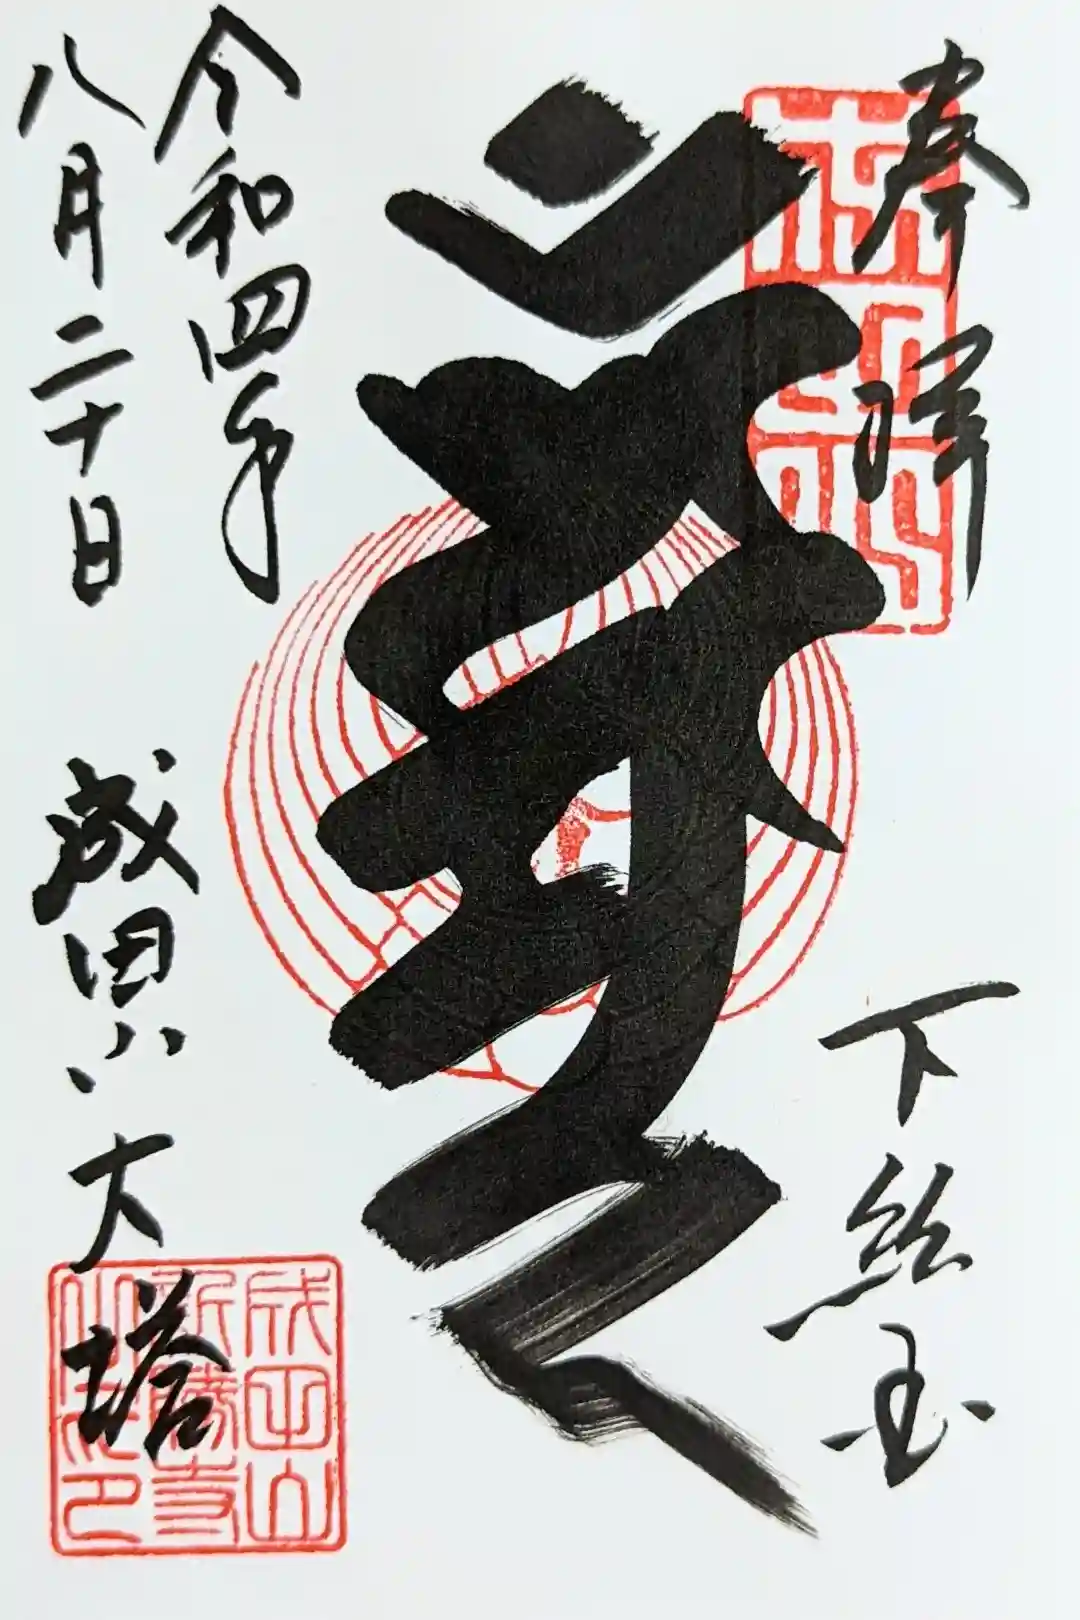 奉拝
下総国
令和四年
八月二十日
成田山 大塔
成田山
新勝寺